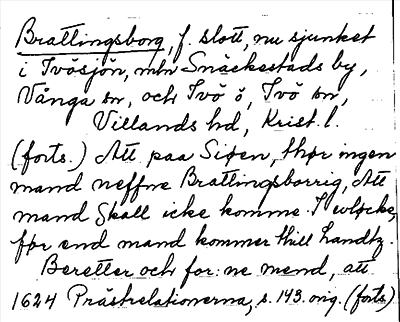 Brattingsborg, f. slott, nu sjunket
i Ivösjön, mln Snäckestads by,
Vånga sn, och Ivö ö, Ivö sn,
Villands hd, Krist. l.
(forts.) Att paa Siøen, thør ingen
mand neffne Brattingsborrig, Att
mand Skall icke komme I wløcke,
før end mand kommer thill Landtz.
Beretter och for: ne mend, att
1624 Prästrelationerna, s. 143. orig. (forts)